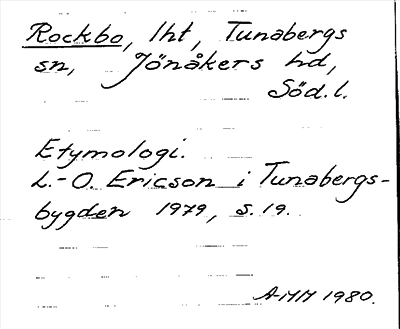 Rockbo, lht, Tunabergs
sn, Jönåkers hd,
Söd. l.
Etymologi.
L.-O. Ericson i Tunabergs-
bygden 1979, s. 19.
AMM 1980.